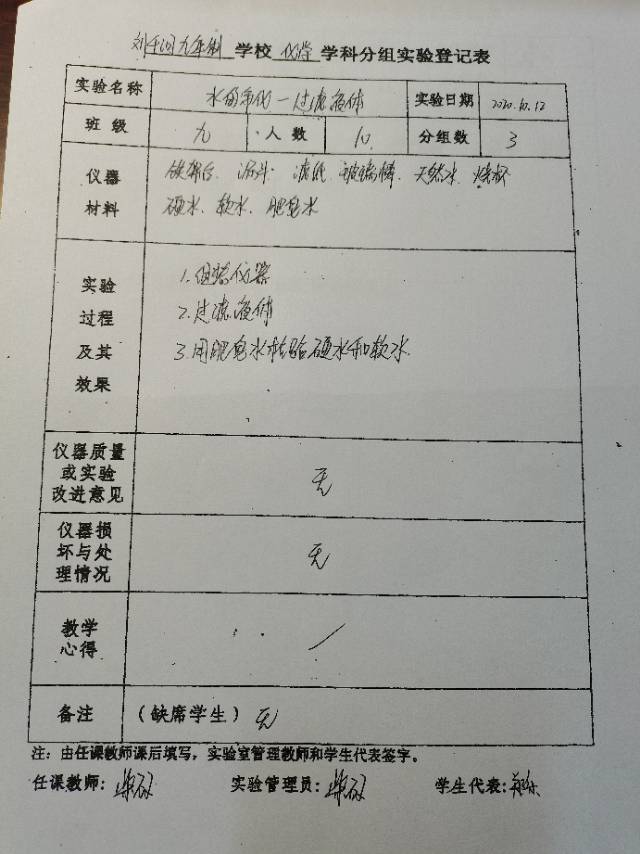 九年制 学校 化学 学科分组实验登记表
实验名称 水的净化－过滤液体 实验日期 2020.10.12
班级 九 人数 10 分组数 3
仪器材料 铁架台. 漏斗. 滤纸. 玻璃棒. 天然水. 烧杯
硬水. 软水. 肥皂水
实验过程及其效果
1.组装仪器
2.过滤液体
3.用肥皂水检验硬水和软水.
仪器质量或实验改进意见 无
仪器损坏与处理情况 无
教学心得 /
备注 (缺席学生) 无
注: 由任课教师课后填写, 实验室管理教师和学生代表签字。
任课教师: 实验管理员: 学生代表: